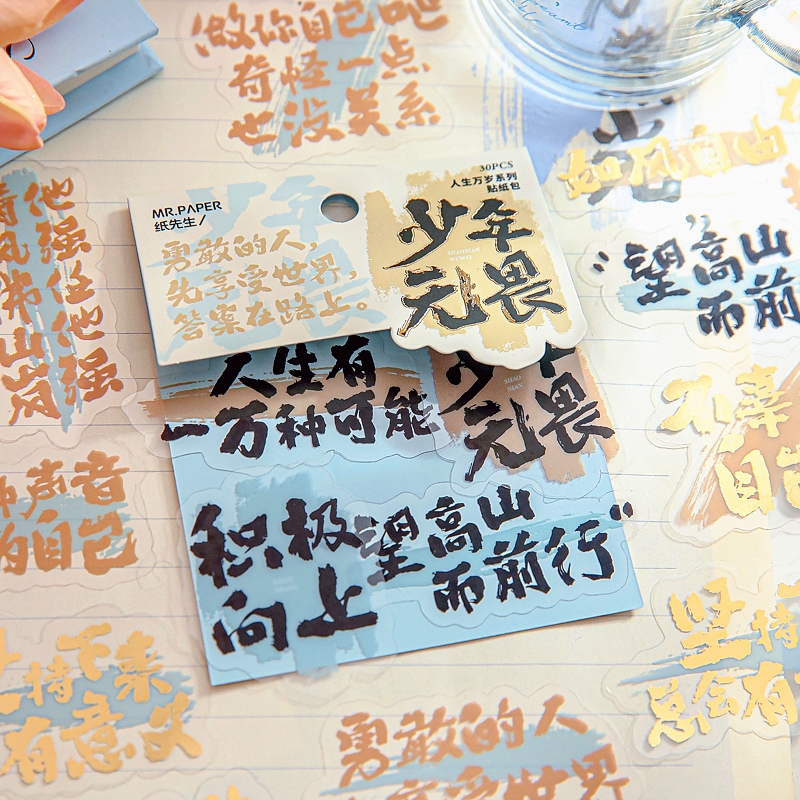 做你自己吧
奇怪一点
也没关系
如风自由
30PCS
人生万岁系列
贴纸包
MR.PAPER
纸先生/
勇敢的人,
先享受世界,
答案在路上。
少年
无畏
SHAONIAN
WUWEI
他强任他强
清风拂山岗
"望高山
而前
人生有
一万种可能
SHAO
NIAN
无畏
积极
向上
望高山
而前行"
不辜
自己
声音
自己
坚持
总会有
坚持下来
有意义
勇敢的人
享受世界